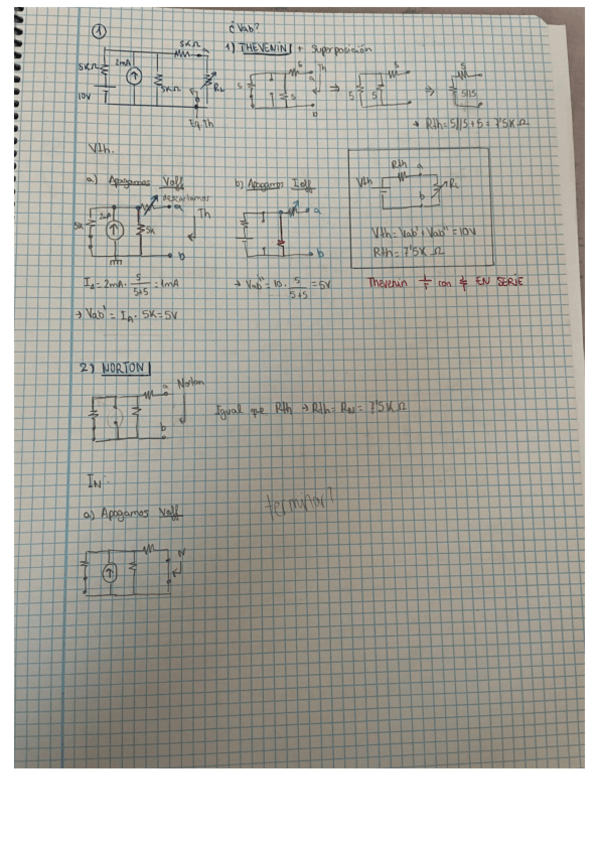 ① ¿Vab?
1) THEVENIN + superposición
5KΩ
5KΩ 2mA 5KΩ RL
10V
Eq.Th
5 5 a Th b
5 5 5
5 5//5
→ Rth = 5//5 + 5 = 7'5K Ω
Vth.
a) Apagamos Voff
descartamos
5K 2mA 5K a Th b
I₁ = 2mA · 5/(5+5) = 1mA
→ Vab' = I_A · 5K = 5V
b) Apagamos Ioff
a
b
→ Vab'' = 10 · 5/(5+5) = 5V
Rth a
Vth b RL
Vth = Vab' + Vab'' = 10V
Rth = 7'5K Ω
Thevenin con EN SERIE
2) NORTON
a Norton
b
Igual que Rth → Rth = RN = 7'5K Ω
IN:
a) Apagamos Voff
terminar!
N